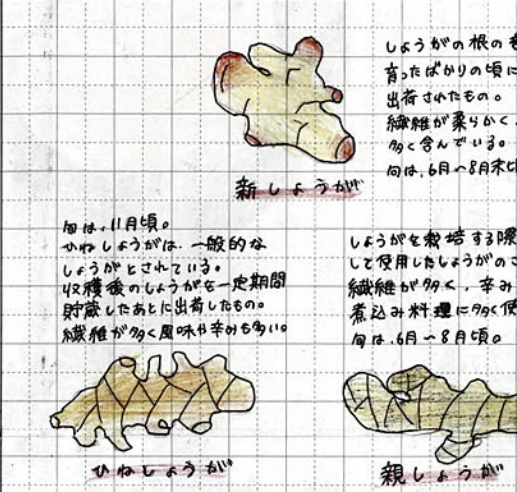 しょうがの根の
育ったばかりの頃に
出荷されたもの。
繊維が柔らかく、
多く含んでいる。
旬は、6月〜8月末
新しょうが
旬は、11月頃。
ひねしょうがは、一般的な
しょうがとされている。
収穫後のしょうがを一定期間
貯蔵したあとに出荷したもの。
繊維が多く風味や辛みも多い。
ひねしょうが
しょうがを栽培する際
して使用したしょうがのこ
繊維が多く、辛み
煮込み料理に多く使
旬は、6月〜8月頃。
親しょうが